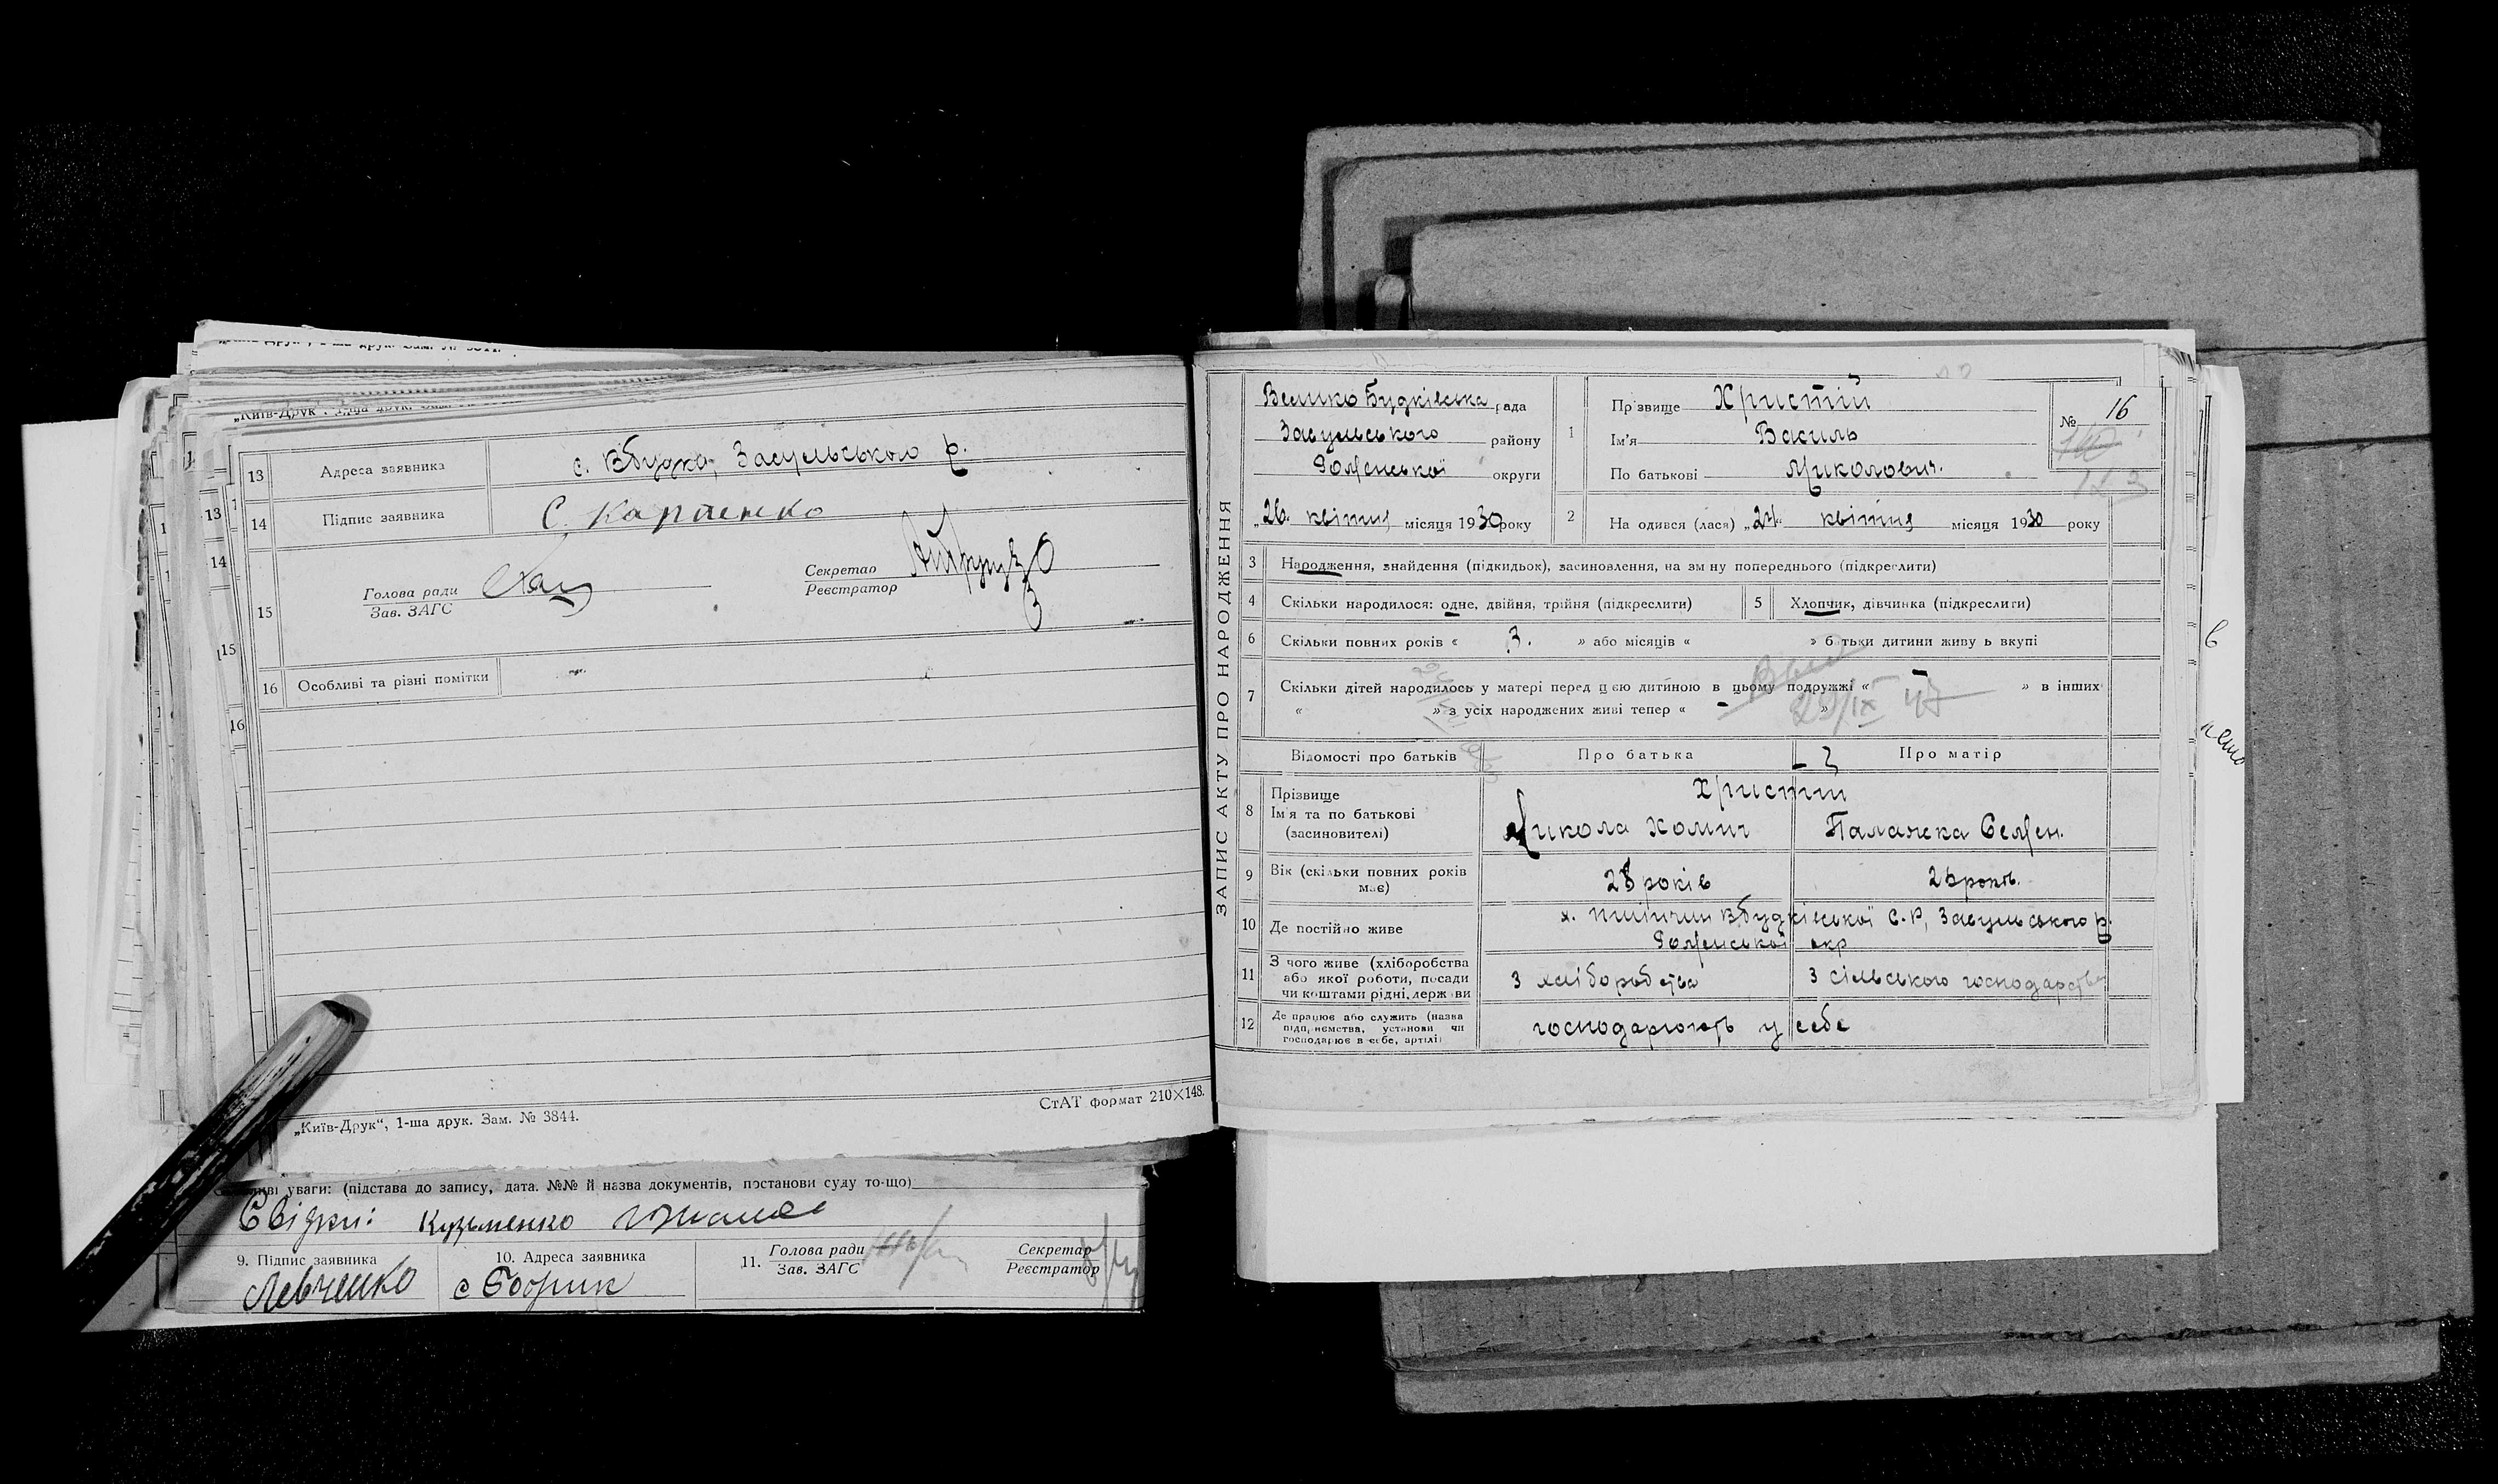 13 Адреса заявника с. Вбудка, Засульського р.
14 Підпис заявника С. Карпенко
15 Голова ради Секретар
Зав. ЗАГС Реєстратор
16 Особливі та різні помітки
„Київ-Друк“, 1-ша друк. Зам. № 3844.
СтАТ формат 210×148.
уваги: (підстава до запису, дата. №№ й назва документів, постанови суду то-що)
Свідки: Кузьменко
9. Підпис заявника 10. Адреса заявника 11. Голова ради Секретар
Зав. ЗАГС Реєстратор
Левченко
ЗАПИС АКТУ ПРО НАРОДЖЕННЯ
Велико Будківська рада
Засульського району
Роменської округи
„26. квітня місяця 1930 року
1 Прізвище Христій
Ім'я Василь
По батькові Миколович.
№ 16
2 На одився (лася) „24“ квітня місяця 1930 року
3 Народження, знайдення (підкидьок), засиновлення, на зм ну попереднього (підкреслити)
4 Скільки народилося: одне, двійня, трійня (підкреслити)
5 Хлопчик, дівчинка (підкреслити)
6 Скільки повних років « 3. » або місяців « » батьки дитини живу ь вкупі
7 Скільки дітей народилось у матері перед цією дитиною в цьому подружжі « – » в інших
« » з усіх народжених живі тепер « – »
29/IX 47
Відомості про батьків Про батька Про матір
8 Прізвище
Ім'я та по батькові
(засиновителі)
Христій
Микола Хомич Палажка Семен.
9 Вік (скільки повних років
має)
28 років 26 років.
10 Де постійно живе
х. Вбудківської С.Р, Засульського р.
Роменської окр
11 З чого живе (хліборобства
або якої роботи, посади
чи коштами рідні, держ ви
З хліборобства З сільського господарства
12 Де працює або служить (назва
підприємства, установи чи
господарює в себе, артілі)
господарюють у себе